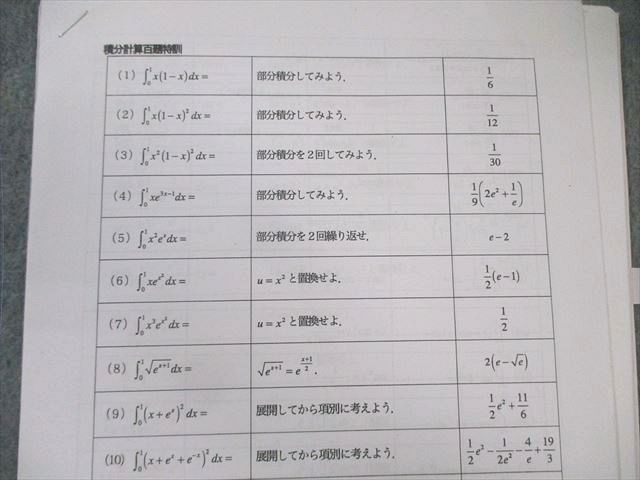 積分計算百題特訓
(1) ∫₀¹ x(1−x)dx= 部分積分してみよう. 1/6
(2) ∫₀¹ x(1−x)²dx= 部分積分してみよう. 1/12
(3) ∫₀¹ x²(1−x)²dx= 部分積分を2回してみよう. 1/30
(4) ∫₀¹ xe^{3x−1}dx= 部分積分してみよう. 1/9(2e²+1/e)
(5) ∫₀¹ x²eˣdx= 部分積分を2回繰り返せ. e−2
(6) ∫₀¹ xe^{x²}dx= u=x²と置換せよ. 1/2(e−1)
(7) ∫₀¹ x³e^{x²}dx= u=x²と置換せよ. 1/2
(8) ∫₀¹ √(e^{x+1})dx= √(e^{x+1})=e^{(x+1)/2}. 2(e−√e)
(9) ∫₀¹ (x+eˣ)²dx= 展開してから項別に考えよう. 1/2e²+11/6
(10) ∫₀¹ (x+eˣ+e^{−x})²dx= 展開してから項別に考えよう. 1/2e²−1/2e²−4/e+19/3